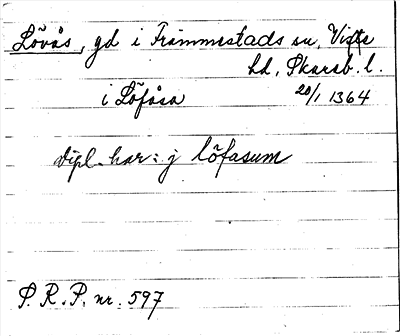 Lövås, gd i Främmestads sn, Viste
hd, Skarab. l.
i Löfåsa 20/1 1364
dipl. har: j löfasum
S. R. P. nr. 597